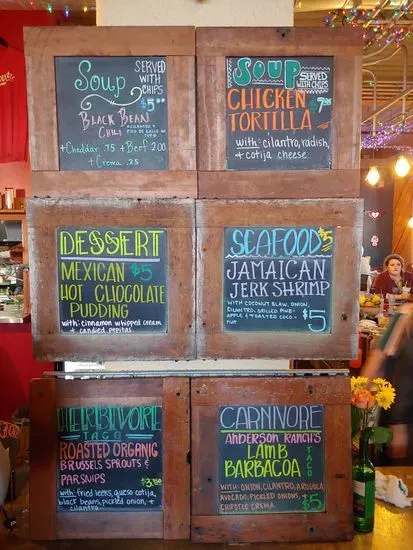 Soup
SERVED
WITH
CHIPS
$5.00
BLACK BEAN
CHILI
CILANTRO
+Cheddar .75 + Beef 2.00
+Crema .25
SOUP
SERVED
WITH CHIPS
CHICKEN
TORTILLA
with: cilantro, radish,
+ cotija cheese.
DESSERT
MEXICAN $5
HOT CHOCOLATE
PUDDING
with: cinnamon whipped cream
+ candied pepitas.
SEAFOOD $5
JAMAICAN
JERK SHRIMP
WITH COCONUT SLAW, ONION,
CILANTRO, GRILLED PINE-
APPLE & TOASTED COCO-
NUT
$5
HERBIVORE
TACO
ROASTED ORGANIC
BRUSSELS SPROUTS &
PARSNIPS
$3.50
with: fried leeks, queso cotija,
black beans, pickled onion, +
cilantro.
CARNIVORE
ANDERSON RANCH'S
LAMB
BARBACOA
TACO
WITH ONION, CILANTRO, ARUGULA
AVOCADO, PICKLED ONIONS, &
CHIPOTLE CREMA
$5